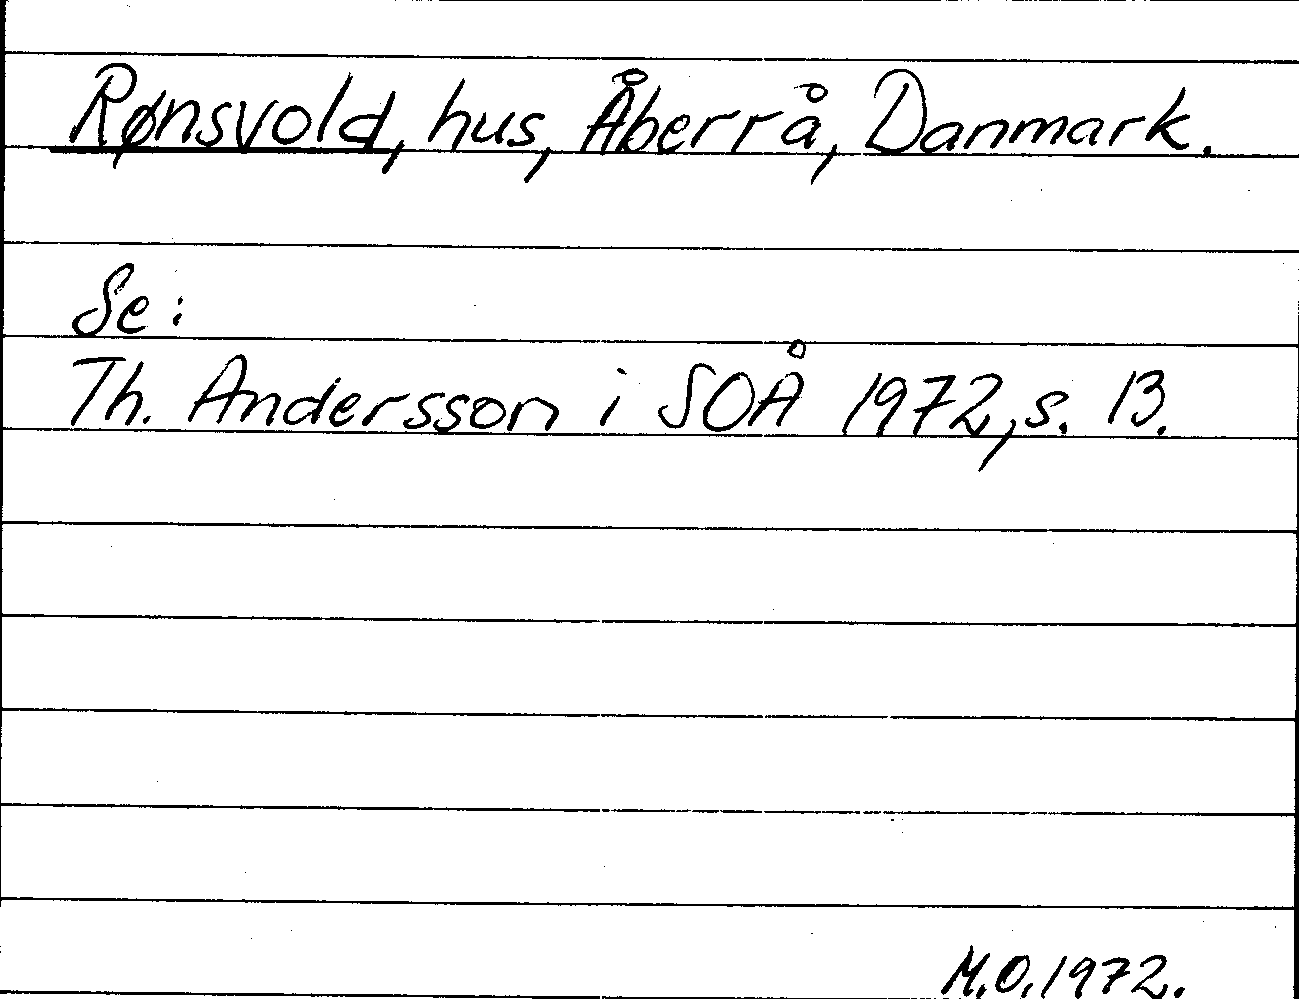 Rønsvold, hus, Åberrå, Danmark.
Se:
Th. Andersson i SOÅ 1972, s. 13.
M.O. 1972.